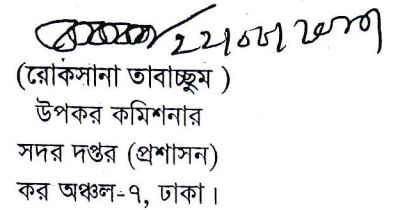 (রোকসানা তাবাচ্ছুম )
উপকর কমিশনার
সদর দপ্তর (প্রশাসন)
কর অঞ্চল-৭, ঢাকা।